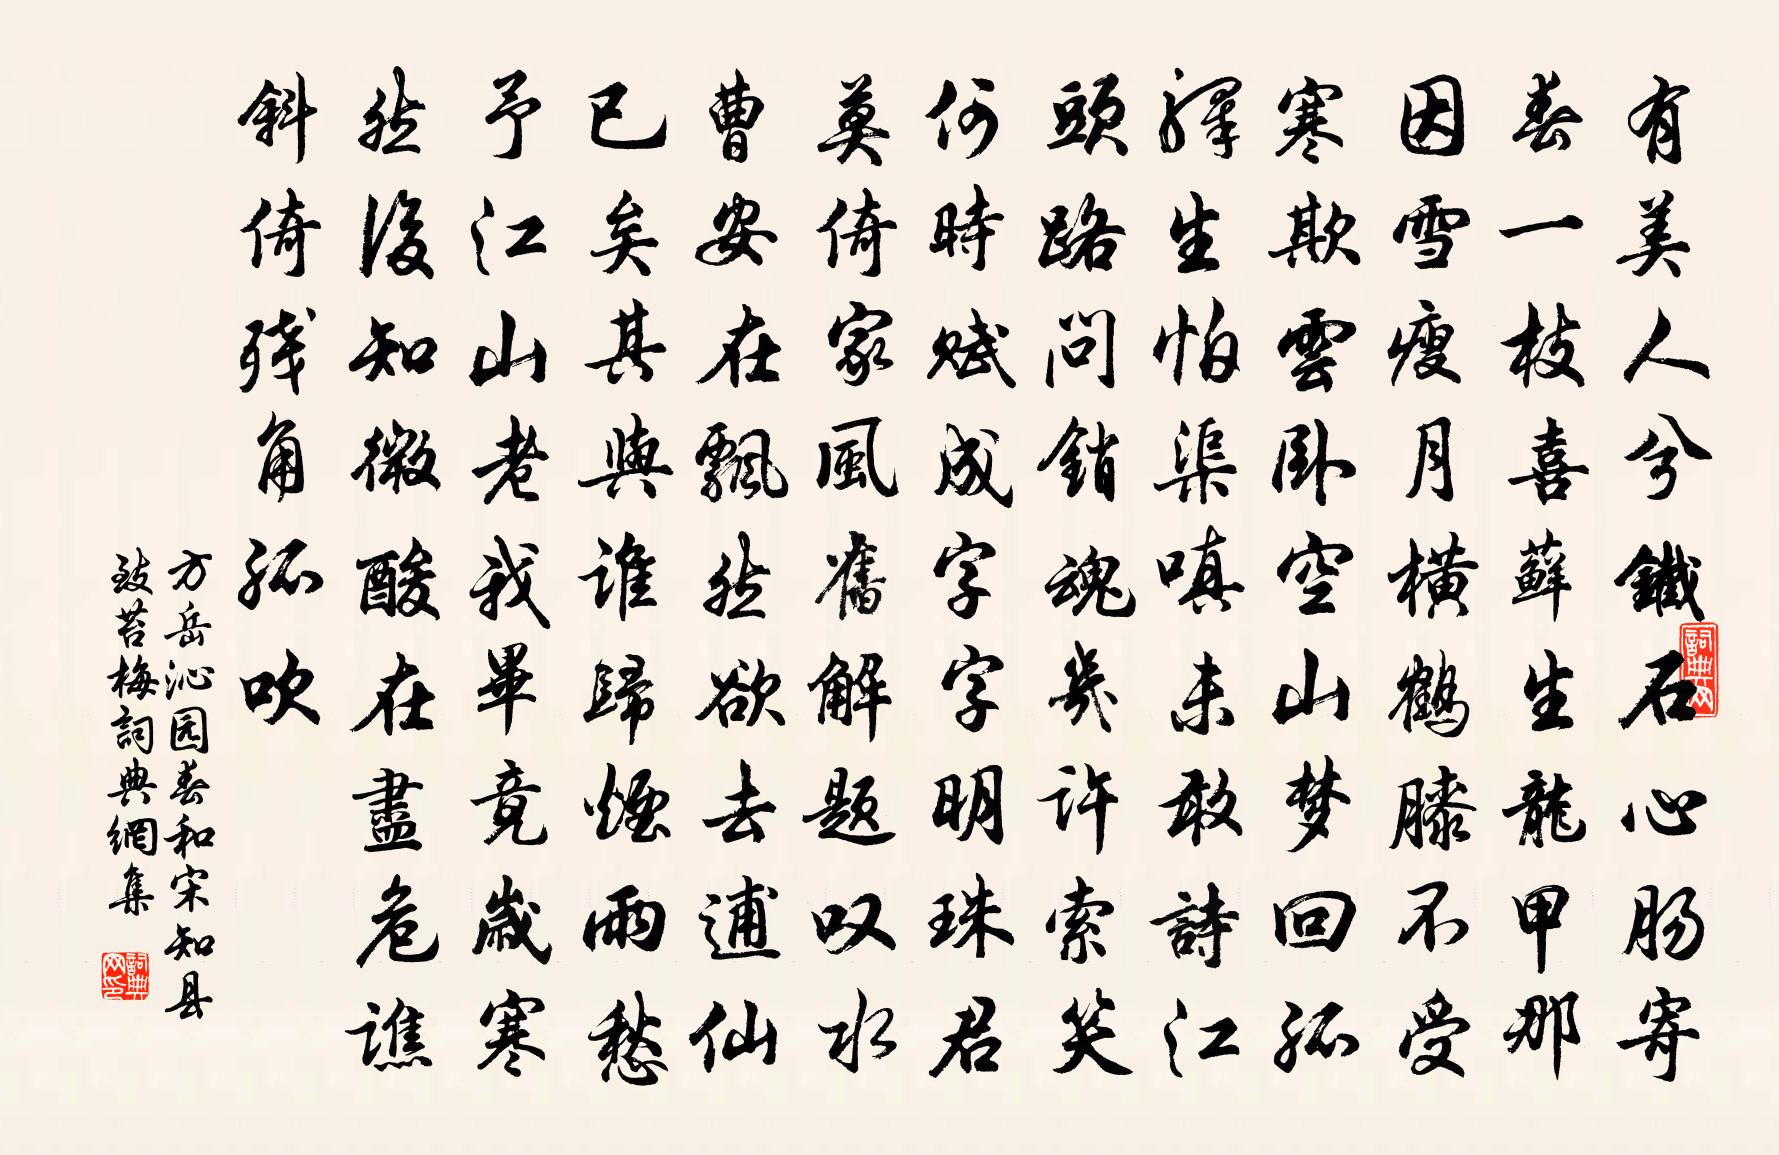 有美人兮鐵石心肠寄
春一枝喜蘚生龍甲那
因雪瘦月横鶴膝不受
寒欺雲卧空山梦回孤
驛生怕渠嗔未敢詩江
頭路問銷魂幾許索笑
何時賦成字字明珠君
莫倚家風舊解题叹水
曹安在飘然欲去逋仙
已矣其與誰歸煙雨愁
予江山老我畢竟歲寒
然後知微酸在盡危譙
斜倚残角孤吹
方岳沁园春和宋知县
致苔梅詞典網集
詞典网
詞典网印